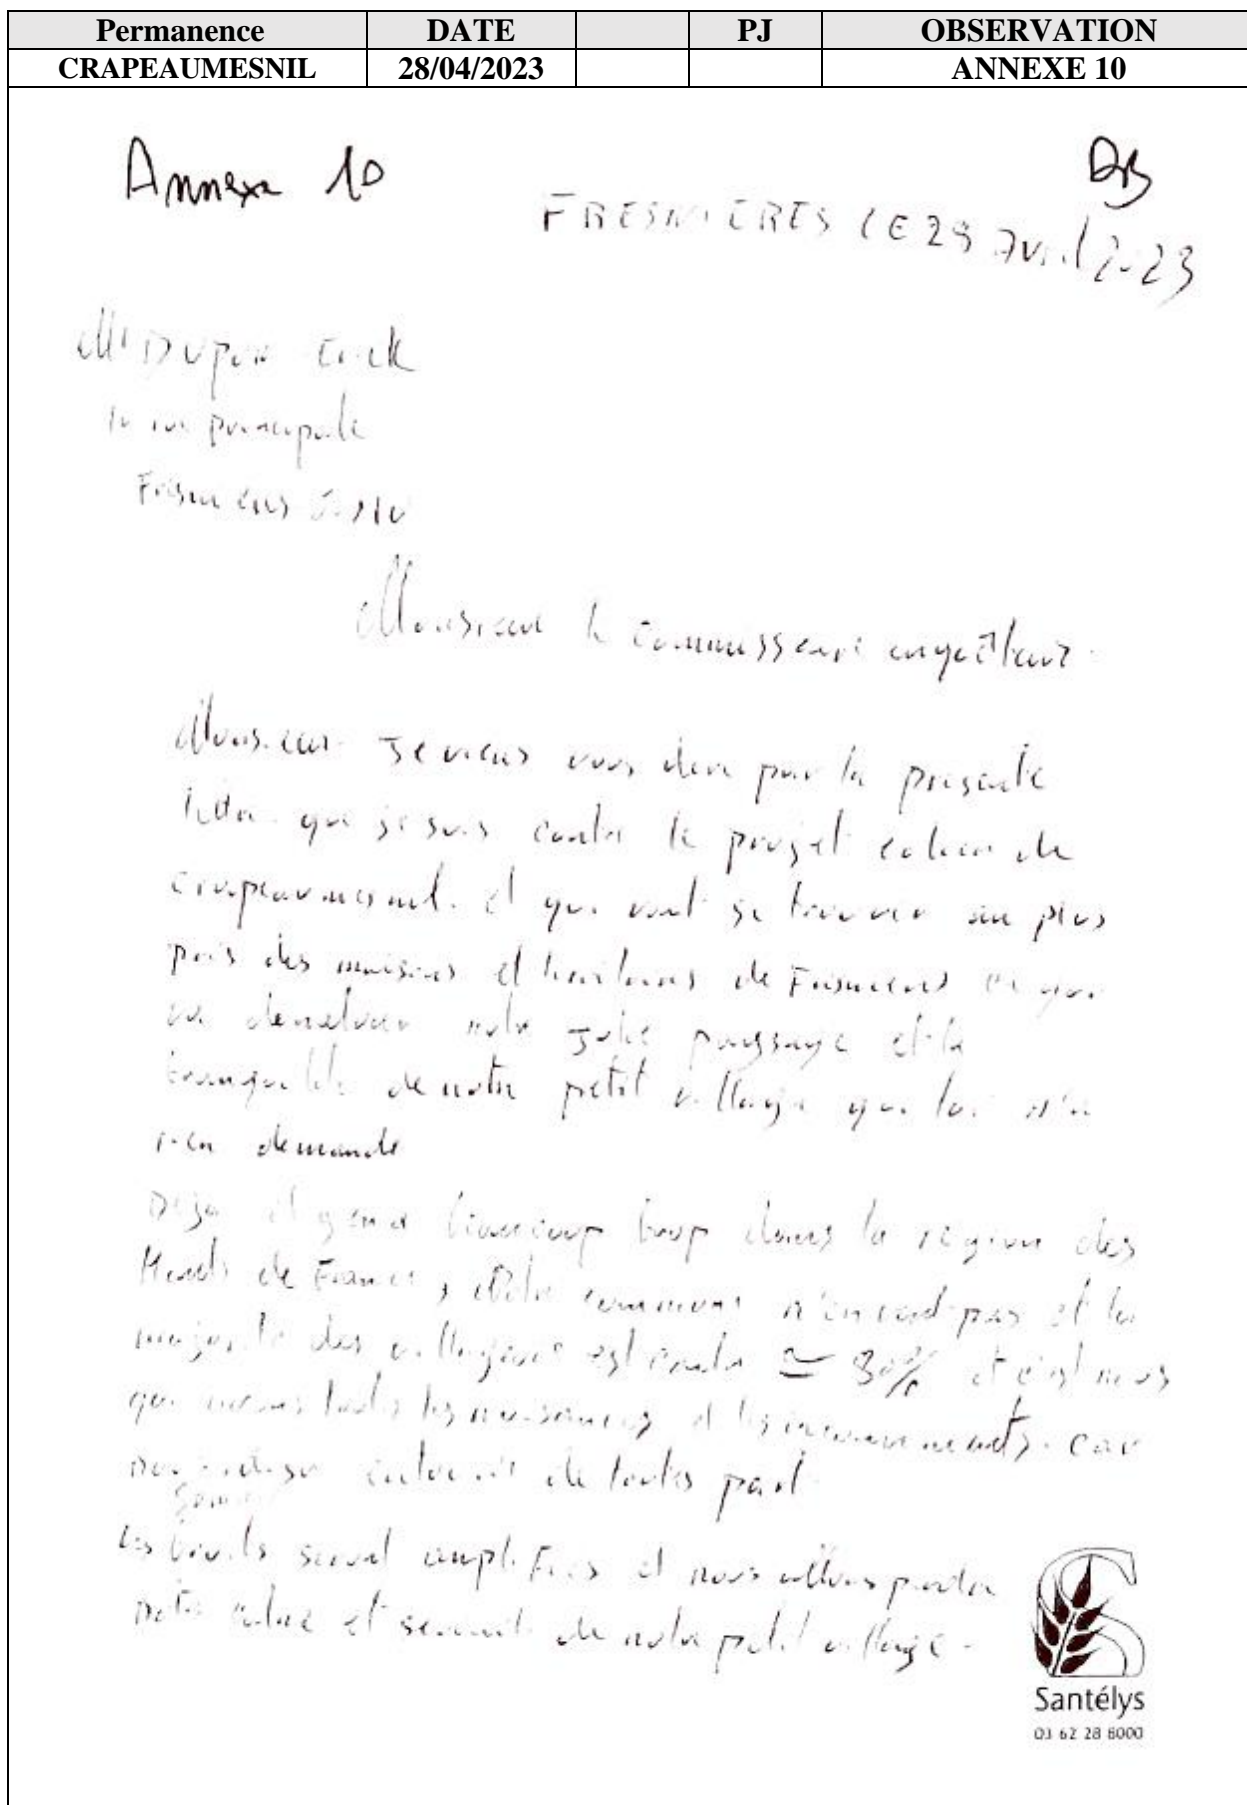 Permanence DATE PJ OBSERVATION
CRAPEAUMESNIL 28/04/2023 ANNEXE 10
Annexe 10 DB
FRESNIERES LE 28 Avril 2023
Mr DUPON
rue principale
Monsieur le commissaire enquêteur
Monsieur Je viens vous dire par la presente
lettre que je suis contre le projet eolien de
crapeaumesnil. et qui vont se trouver au plus
pres des maisons et de Fresnieres
notre Jolie paysage et la
tranquilite de notre petit village qui lui n'a
rien demande
Deja il y en a beaucoup trop dans la region des
Hauts de France, Notre commune n'en veut pas et la
majorité des villageois est contre ≃ 80% et c'est nous
qui aurons toutes les nuisances et les inconvenients. car
sommes de toutes part
Les bruits seront amplifiés et nous allons perdre
notre calme et de notre petit village.
Santélys
03 62 28 8000